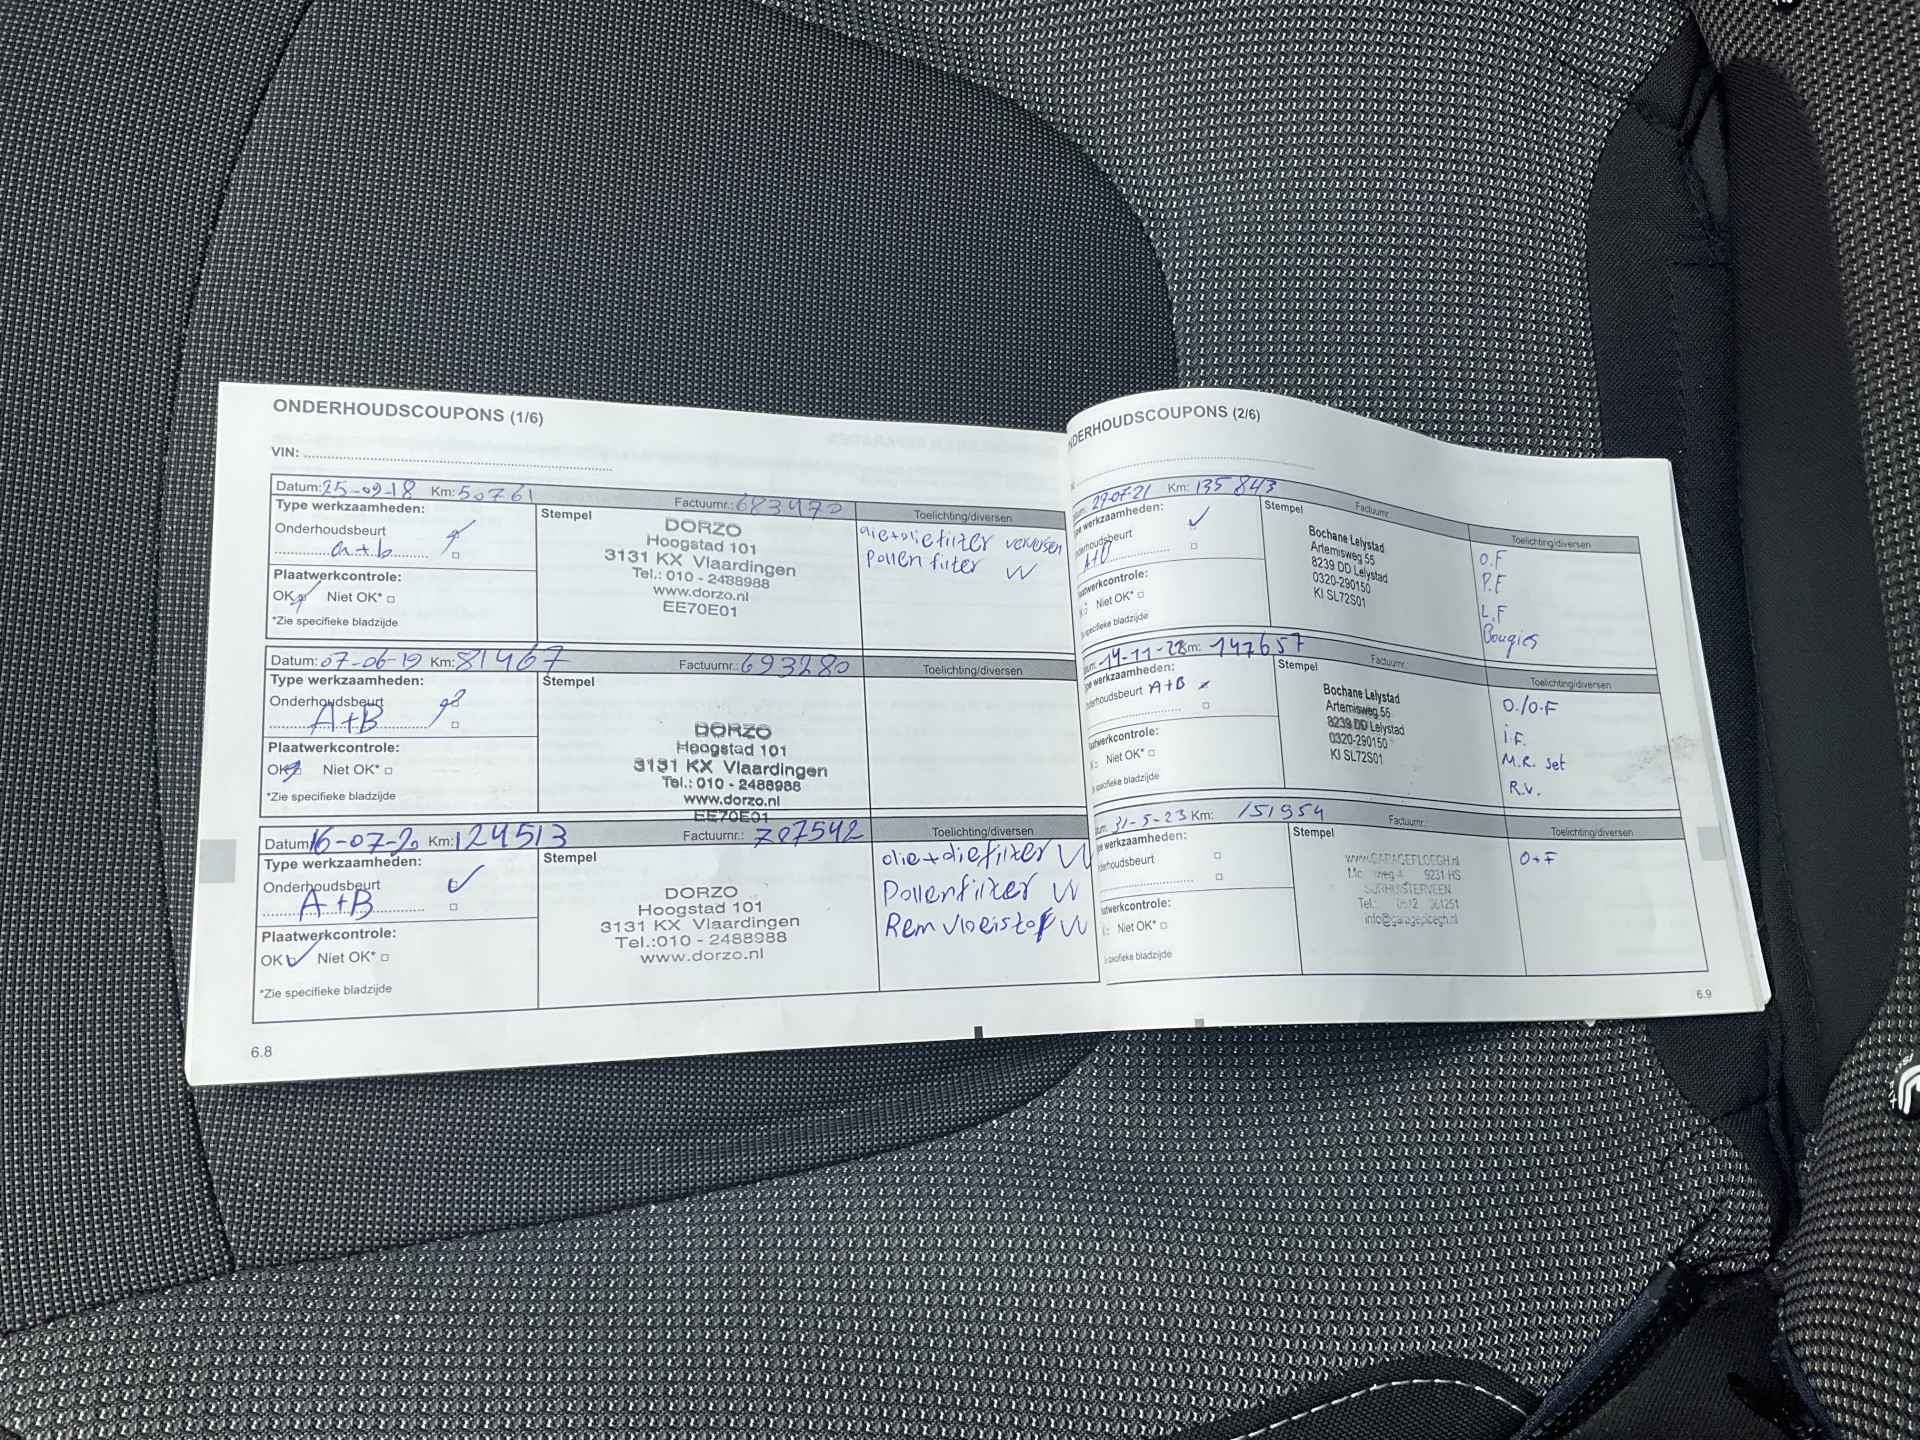 ONDERHOUDSCOUPONS (1/6)
VIN:
Datum: 25-09-18 Km: 50761 Factuurnr.: 683470
Type werkzaamheden:
Stempel
Toelichting/diversen
Onderhoudsbeurt
a+b
Plaatwerkcontrole:
OK Niet OK*
*Zie specifieke bladzijde
DORZO
Hoogstad 101
3131 KX Vlaardingen
Tel.: 010 - 2488988
www.dorzo.nl
EE70E01
olie+oliefilter verversen
pollen filter VV
Datum: 07-06-19 Km: 81467 Factuurnr.: 693280
Type werkzaamheden:
Stempel
Toelichting/diversen
Onderhoudsbeurt
A+B
Plaatwerkcontrole:
OK Niet OK*
*Zie specifieke bladzijde
DORZO
Hoogstad 101
3131 KX Vlaardingen
Tel.: 010 - 2488988
www.dorzo.nl
EE70E01
Datum: 16-07-20 Km: 124513 Factuurnr.: 707542
Type werkzaamheden:
Stempel
Toelichting/diversen
Onderhoudsbeurt
A+B
Plaatwerkcontrole:
OK Niet OK*
*Zie specifieke bladzijde
DORZO
Hoogstad 101
3131 KX Vlaardingen
Tel.:010 - 2488988
www.dorzo.nl
olie+oliefilter VV
Pollenfilter VV
Remvloeistof VV
6.8
NDERHOUDSCOUPONS (2/6)
29-07-21 Km: 135843 Factuurnr.
ype werkzaamheden:
Stempel
Toelichting/diversen
nderhoudsbeurt
A+B
laatwerkcontrole:
Niet OK*
specifieke bladzijde
Bochane Lelystad
Artemisweg 55
8239 DD Lelystad
0320-290150
KI SL72S01
O.F
P.F
L.F
Bougies
14-11-22 Km: 147657 Factuurnr.
pe werkzaamheden:
Stempel
Toelichting/diversen
derhoudsbeurt A+B
Niet OK*
specifieke bladzijde
Bochane Lelystad
Artemisweg 55
8239 DD Lelystad
0320-290150
KI SL72S01
O./O.F
i.F.
M.R. set
R.V.
31-5-23 Km: 151954 Factuurnr.
e werkzaamheden:
Stempel
Toelichting/diversen
derhoudsbeurt
atwerkcontrole:
Niet OK*
specifieke bladzijde
www.GARAGEPLOEGH.nl
9231 HS
SURHUISTERVEEN
Tel.: 0512 361251
info@garageploegh.nl
O+F
6.9